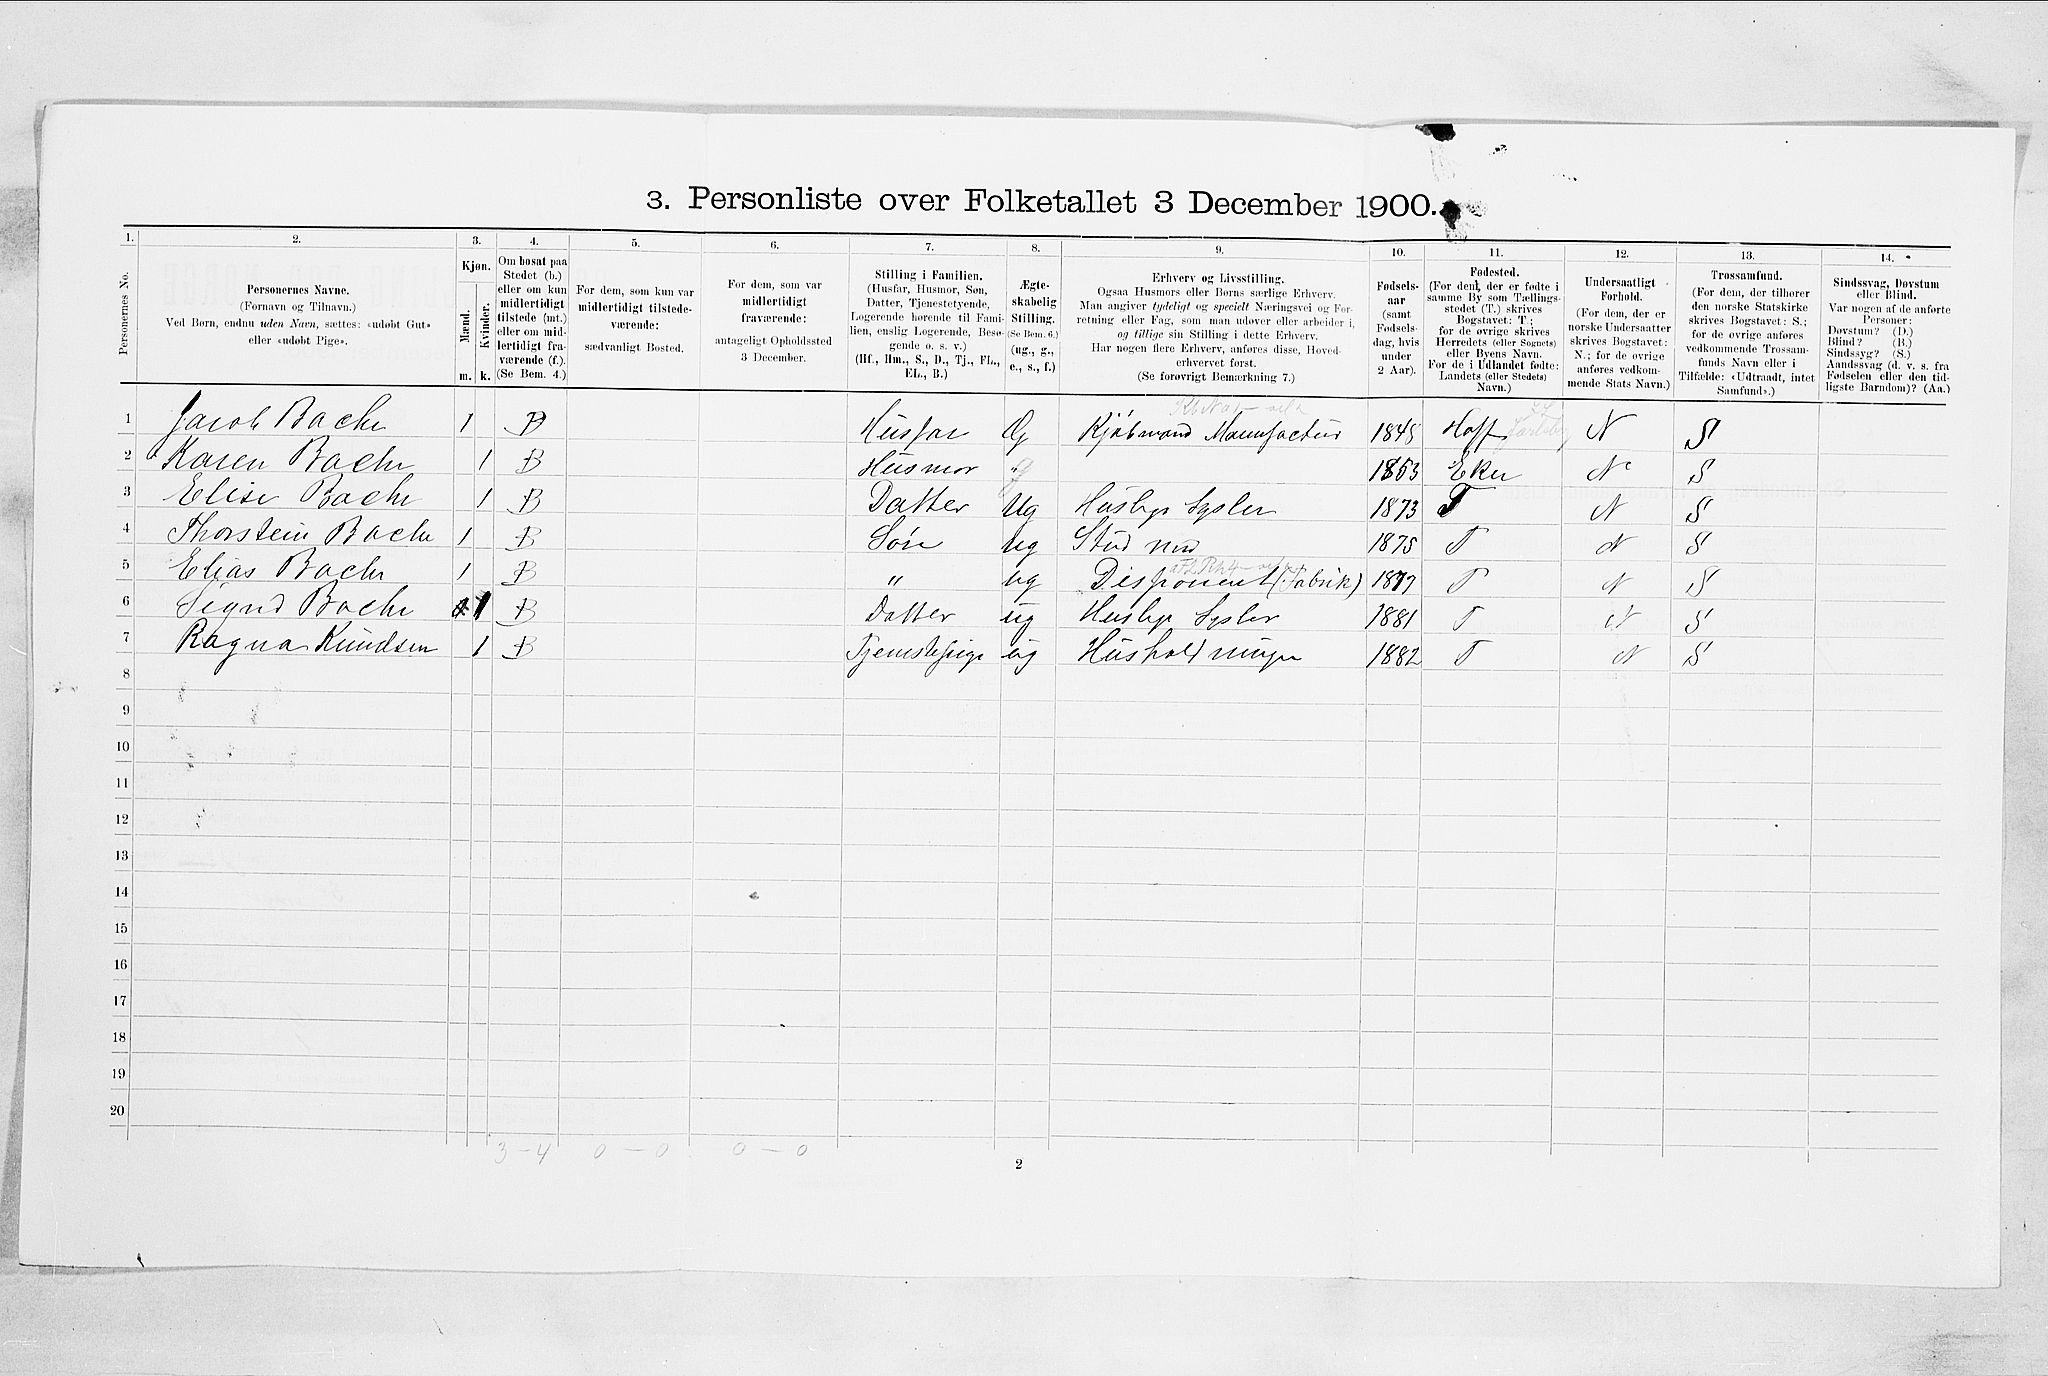 3. Personliste over Folketallet 3 December 1900.
1. 2. 3. 4. 5. 6. 7. 8. 9. 10. 11. 12. 13. 14.
Personernes No.
Personernes Navne.
(Fornavn og Tilnavn.)
Ved Børn, endnu uden Navn, sættes: «udøbt Gut»
eller «udøbt Pige».
Kjøn.
Mænd.
Kvinder.
m. k.
Om bosat paa
Stedet (b.)
eller om kun
midlertidigt
tilstede (mt.)
eller om mid-
lertidigt fra-
værende (f.).
(Se Bem. 4.)
For dem, som kun var
midlertidigt tilstede-
værende:
sædvanligt Bosted.
For dem, som var
midlertidigt
fraværende:
antageligt Opholdssted
3 December.
Stilling i Familien.
(Husfar, Husmor, Søn,
Datter, Tjenestetyende,
Logerende hørende til Fami-
lien, enslig Logerende, Besø-
gende o. s. v.)
(Hf., Hm., S., D., Tj., FL.,
EL., B.)
Ægte-
skabelig
Stilling.
(Se Bem. 6.)
(ug., g.,
e., s., f.)
Erhverv og Livsstilling.
Ogsaa Husmors eller Børns særlige Erhverv.
Man angiver tydeligt og specielt Næringsvei og For-
retning eller Fag, som man udøver eller arbeider i,
og tillige sin Stilling i dette Erhverv.
Har nogen flere Erhverv, anføres disse, Hoved-
erhvervet først.
(Se forøvrigt Bemærkning 7.)
Fødsels-
aar
(samt
Fødsels-
dag, hvis
under
2 Aar).
Fødested.
(For dem, der er fødte i
samme By som Tællings-
stedet (T.) skrives
Bogstavet: T.;
for de øvrige skrives
Herredets (eller Sognets)
eller Byens Navn.
For de i Udlandet fødte:
Landets (eller Stedets)
Navn.)
Undersaatligt
Forhold.
(For dem, der er
norske Undersaatter
skrives Bogstavet:
N.; for de øvrige
anføres vedkom-
mende Stats Navn.)
Trossamfund.
(For dem, der tilhører
den norske Statskirke
skrives Bogstavet: S.;
for de øvrige anføres
vedkommende Trossam-
funds Navn eller i
Tilfælde: «Udtraadt, intet
Samfund».)
Sindssvag, Døvstum
eller Blind.
Var nogen af de anførte
Personer:
Døvstum? (D.)
Blind? (B.)
Sindssyg? (S.)
Aandssvag (d. v. s. fra
Fødselen eller den tid-
ligste Barndom)? (Aa.)
1 Jacob Bache 1 B Husfar G Kjøbmand Manufactur 1845 Hoff N S
2 Karen Bache 1 B Husmor g 1853 Eker N S
3 Elise Bache 1 B Datter ug Huslge Sysler 1873 T N S
4 Thorstein Bache 1 B Søn ug Stud med 1875 T N S
5 Elias Bache 1 B " ug Disponent (Fabrik) 1877 T N S
6 Signd Bache 1 B Datter ug Huslge Sysler 1881 T N S
7 Ragna Knudsen 1 B Tjenestepige ug Husholdninge 1882 T N S
8
9
10
11
12
13
14
15
16
17
18
19
20
3 - 4 0 - 0 0 - 0
2